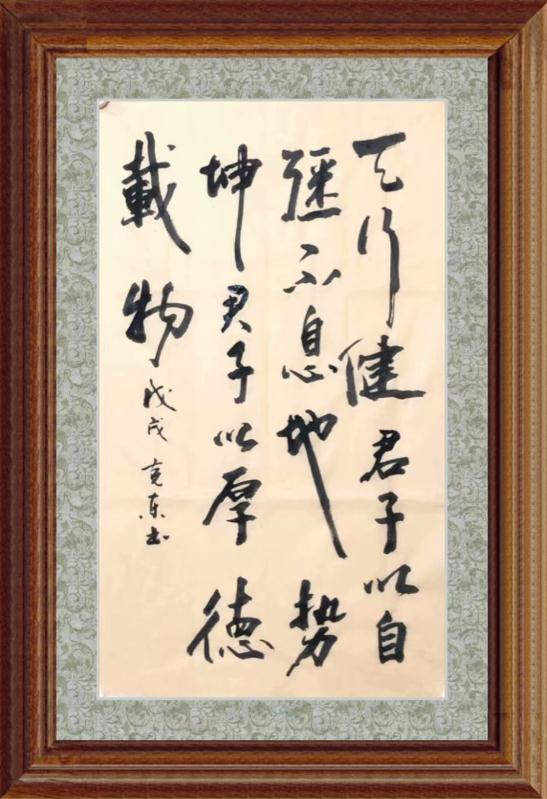 天行健君子以自
彊不息地势
坤君子以厚德
載物
戊戌亮东书